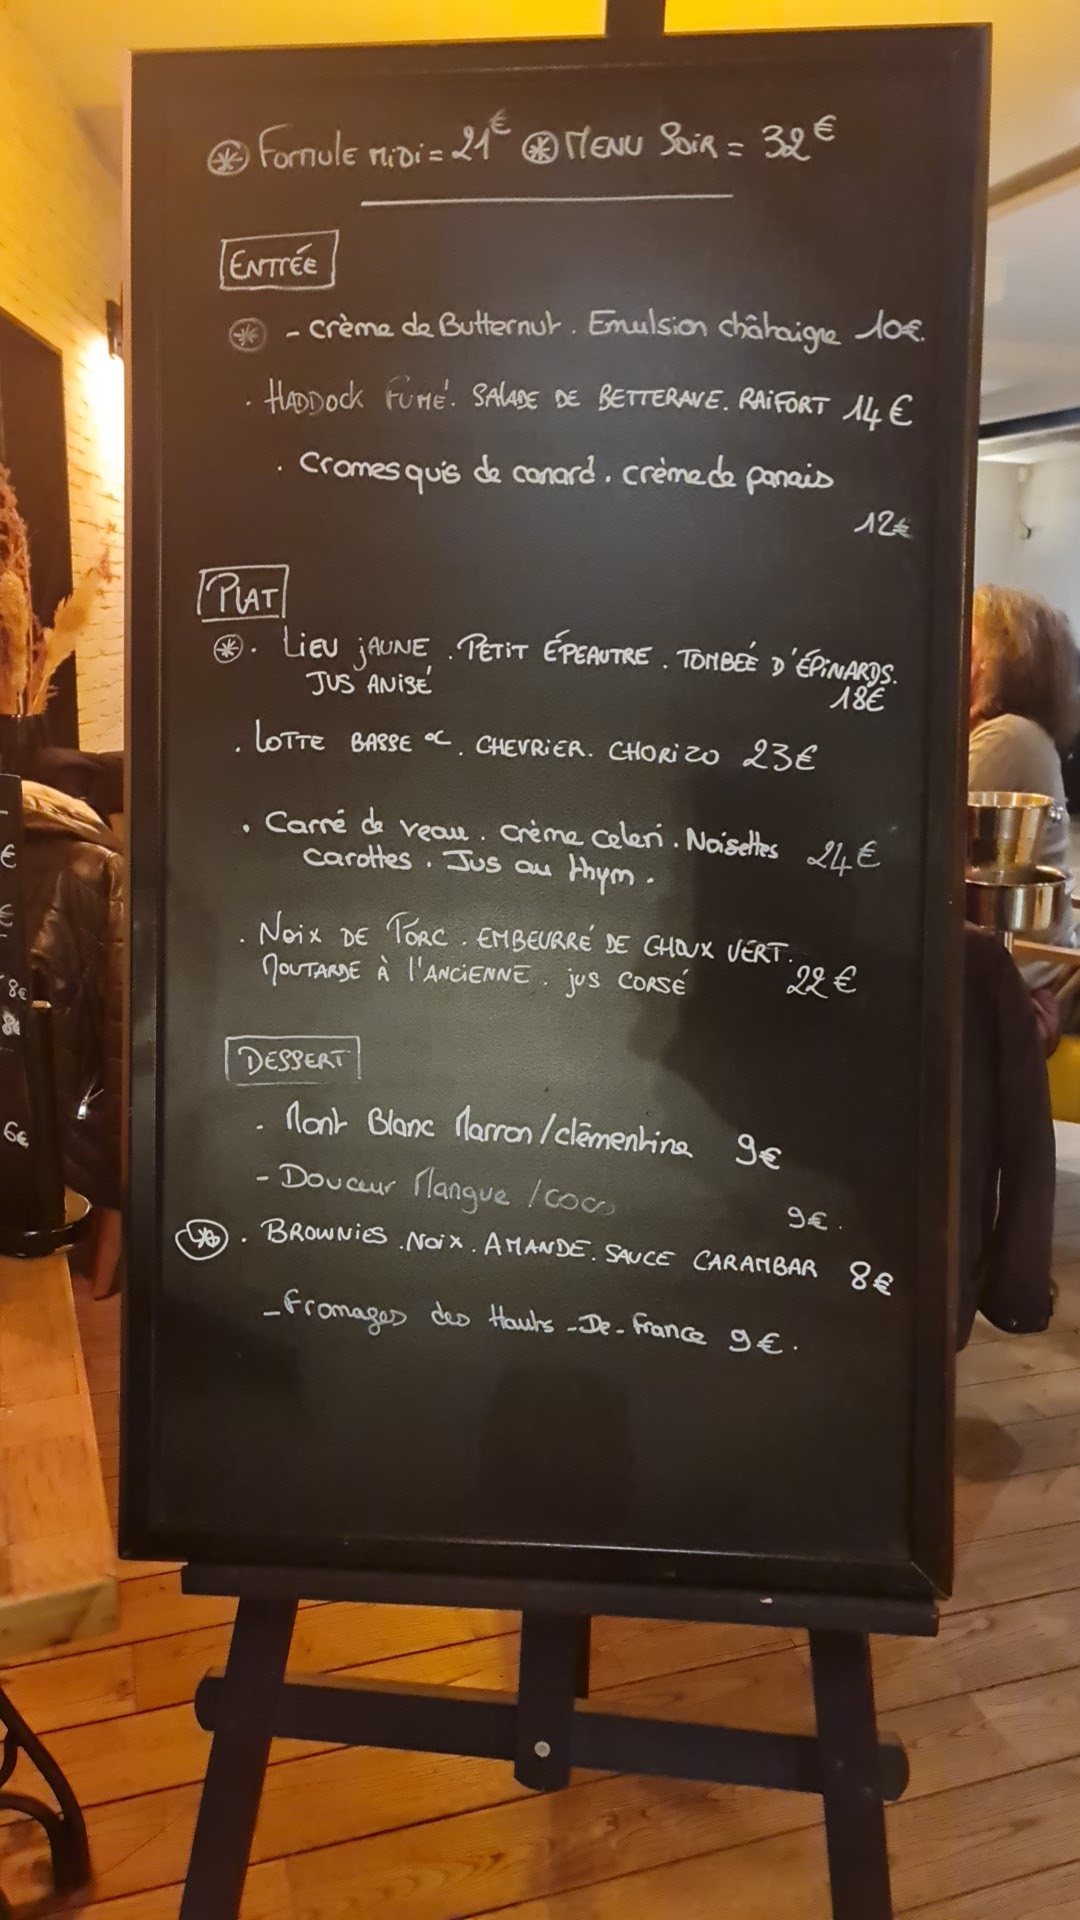 Formule midi = 21€ MENU SOIR = 32€
ENTRÉE
- crème de Butternut. Emulsion châtaigne 10€.
. HADDOCK FUMÉ. SALADE DE BETTERAVE. RAIFORT 14€
. Cromesquis de canard. crème de panais
12€
PLAT
. LIEU JAUNE. PETIT ÉPEAUTRE. TOMBÉE D'ÉPINARDS.
JUS ANISÉ 18€
. LOTTE BASSE °C. CHEVRIER. CHORIZO 23€
. Carré de veau. crème celeri. Noisettes 24€
carottes. Jus au thym.
. NOIX DE PORC. EMBEURRÉ DE CHOUX VERT.
MOUTARDE À L'ANCIENNE. JUS CORSÉ 22€
DESSERT
. Mont Blanc Marron/clémentine 9€
- Douceur Mangue /coco 9€.
. BROWNIES. NOIX. AMANDE. SAUCE CARAMBAR 8€
- Fromages des Hauts-De-France 9€.
€
€
8€
8€
6€